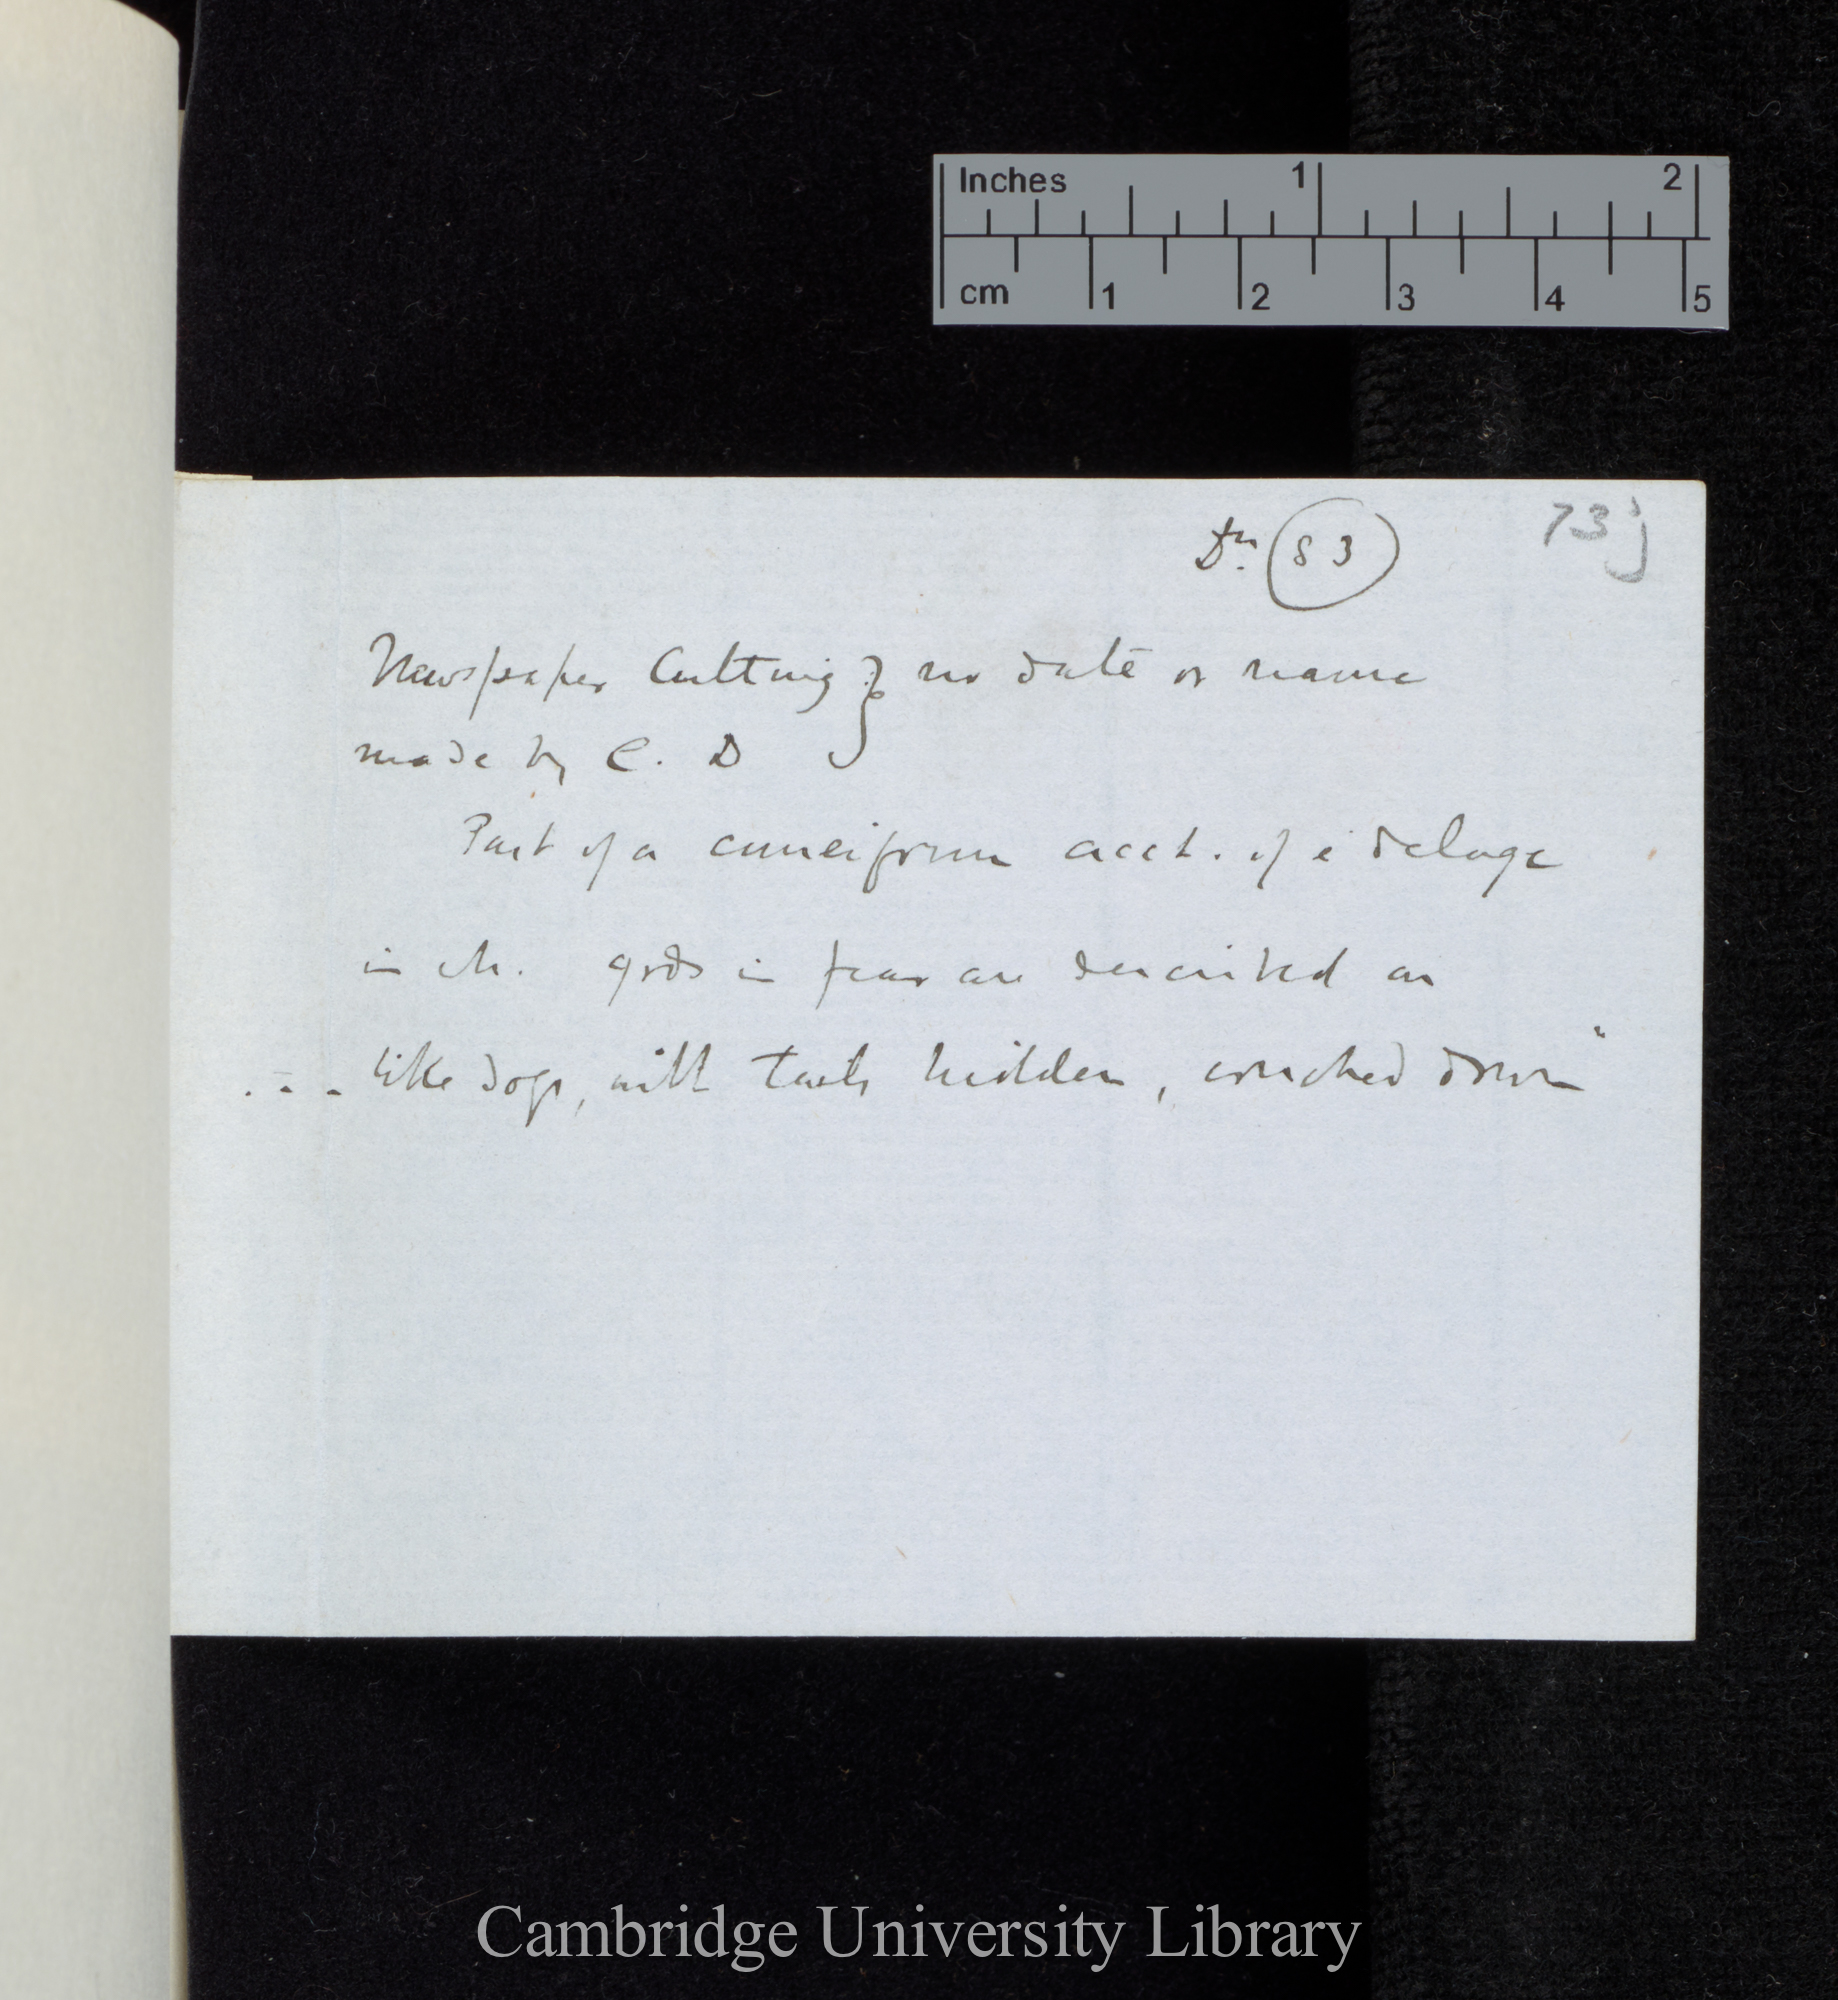 Inches 1 2
cm 1 2 3 4 5
Dn. 53 73j
Newspaper Cutting } no date or name
made by C. D
Part of a cuneiform acct. of e deluge
in wh. gods in fear are described as
... like dogs, with tails hidden, crouched down"
Cambridge University Library